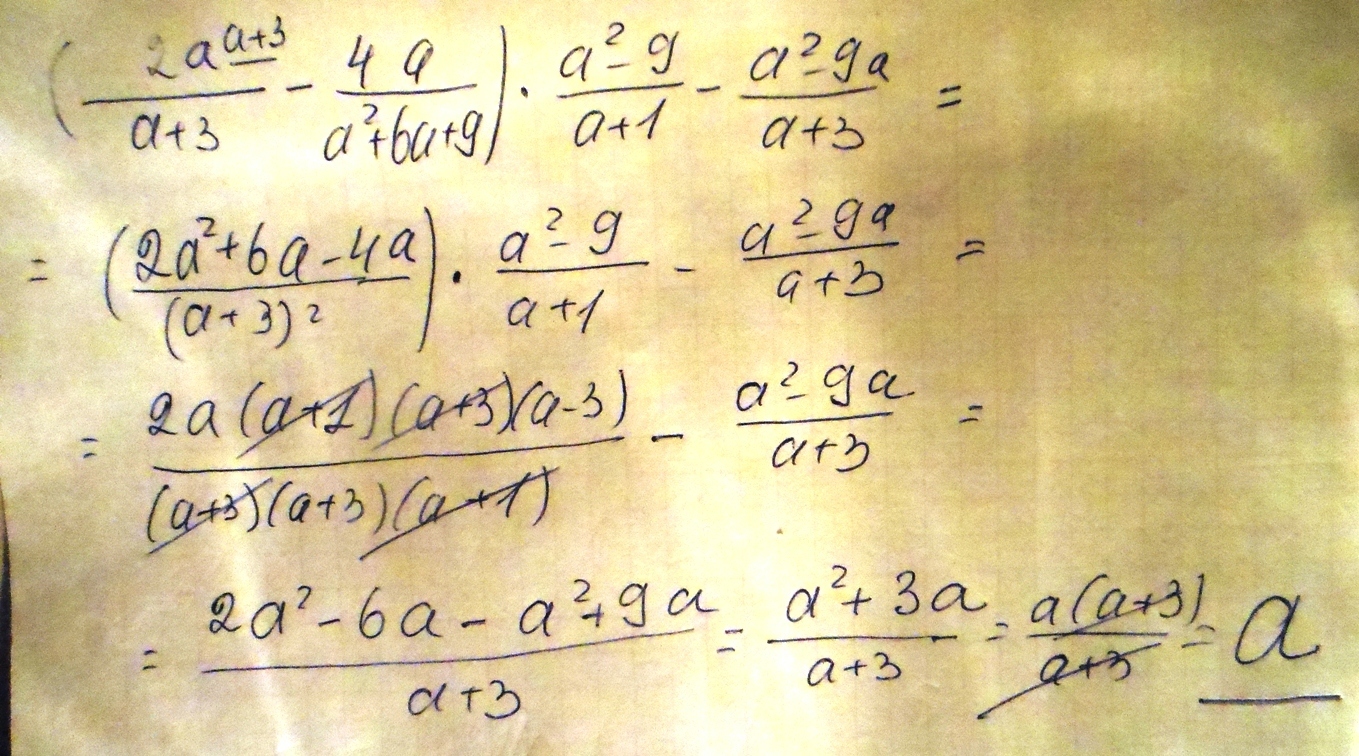 (2a^{a+3}/(a+3) - 4a/(a²+6a+9)) · (a²-9)/(a+1) - (a²-9a)/(a+3) =
= ((2a²+6a-4a)/(a+3)²) · (a²-9)/(a+1) - (a²-9a)/(a+3) =
= 2a(a+1)(a+3)(a-3)/((a+3)(a+3)(a+1)) - (a²-9a)/(a+3) =
= (2a²-6a-a²+9a)/(a+3) = (a²+3a)/(a+3) = a(a+3)/(a+3) = a